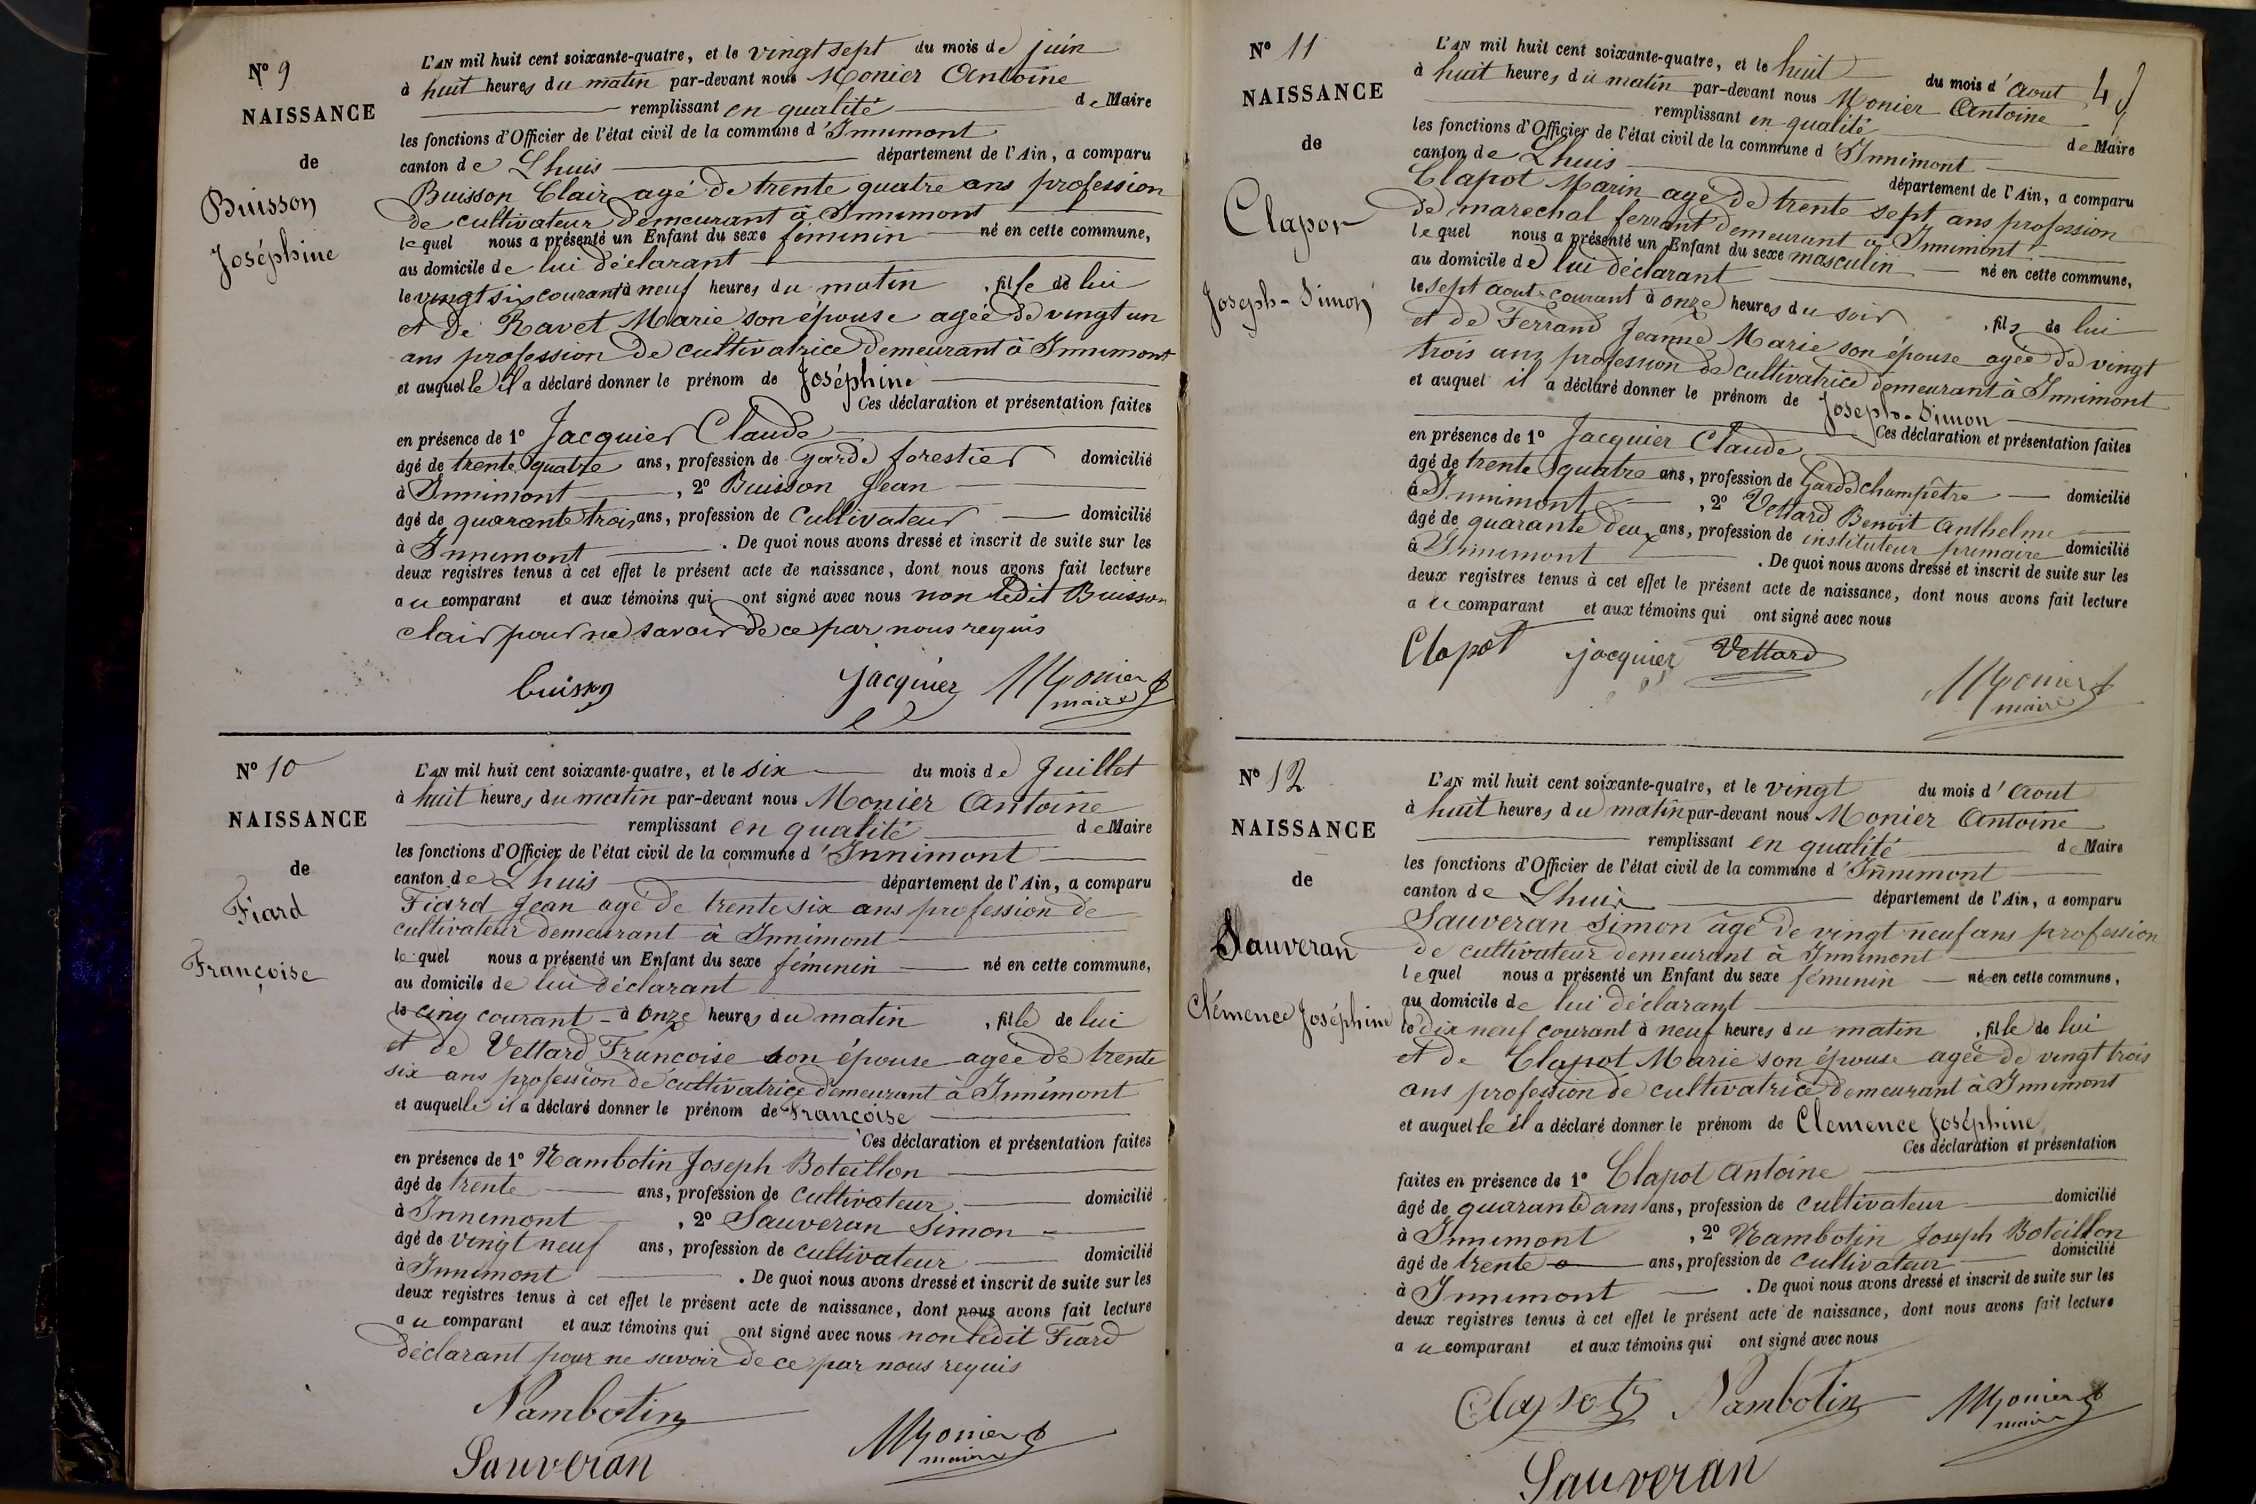 N° 9
NAISSANCE
de
Buisson
Joséphine
L'AN mil huit cent soixante-quatre, et le vingt sept du mois de juin
à huit heures du matin par-devant nous Monier Antoine
remplissant en qualité de Maire
les fonctions d'Officier de l'état civil de la commune d'Innimont
canton de Lhuis département de l'Ain, a comparu
Buisson Clair agé de trente quatre ans profession
de cultivateur demeurant à Innimont
lequel nous a présenté un Enfant du sexe féminin né en cette commune,
au domicile de lui déclarant
le vingt six courant à neuf heures du matin, fille de lui
et de Ravet Marie son épouse agée de vingt un
ans profession de cultivatrice demeurant à Innimont
et auquelle il a déclaré donner le prénom de Joséphine
Ces déclaration et présentation faites
en présence de 1° Jacquier Claude
âgé de trente quatre ans, profession de garde forestier domicilié
à Innimont, 2° Buisson Jean
âgé de quarante trois ans, profession de cultivateur domicilié
à Innimont. De quoi nous avons dressé et inscrit de suite sur les
deux registres tenus à cet effet le présent acte de naissance, dont nous avons fait lecture
au comparant et aux témoins qui ont signé avec nous non ledit Buisson
clair pour ne savoir de ce par nous requis
buisson jacquier Monier
maire
N° 10
NAISSANCE
de
Fiard
Françoise
L'AN mil huit cent soixante-quatre, et le six du mois de Juillet
à huit heures du matin par-devant nous Monier Antoine
remplissant en qualité de Maire
les fonctions d'Officier de l'état civil de la commune d'Innimont
canton de Lhuis département de l'Ain, a comparu
Fiard Jean agé de trente six ans profession de
cultivateur demeurant à Innimont
lequel nous a présenté un Enfant du sexe féminin né en cette commune,
au domicile de lui déclarant
le cinq courant à onze heures du matin, fille de lui
et de Vettard Françoise son épouse agée de trente
six ans profession de cultivatrice demeurant à Innimont
et auquelle il a déclaré donner le prénom de Françoise
Ces déclaration et présentation faites
en présence de 1° Nambotin Joseph Boteillon
âgé de trente ans, profession de cultivateur domicilié
à Innimont, 2° Sauveran Simon
âgé de vingt neuf ans, profession de cultivateur domicilié
à Innimont. De quoi nous avons dressé et inscrit de suite sur les
deux registres tenus à cet effet le présent acte de naissance, dont nous avons fait lecture
au comparant et aux témoins qui ont signé avec nous non ledit Fiard
déclarant pour ne savoir de ce par nous requis
Nambotin
Monier
maire
Sauveran
N° 11
NAISSANCE
de
Clapot
Joseph-Simon
L'AN mil huit cent soixante-quatre, et le huit du mois d'Aout
à huit heures du matin par-devant nous Monier Antoine
remplissant en qualité de Maire
les fonctions d'Officier de l'état civil de la commune d'Innimont
canton de Lhuis département de l'Ain, a comparu
Clapot Marin agé de trente sept ans profession
de marechal ferrant demeurant à Innimont
lequel nous a présenté un Enfant du sexe masculin né en cette commune,
au domicile de lui déclarant
le sept aout courant à onze heures du soir, fils de lui
et de Ferrand Jeanne Marie son épouse agée de vingt
trois ans profession de cultivatrice demeurant à Innimont
et auquel il a déclaré donner le prénom de Joseph-Simon
Ces déclaration et présentation faites
en présence de 1° Jacquier Claude
âgé de trente quatre ans, profession de Garde champêtre domicilié
à Innimont, 2° Vettard Benoit Anthelme
âgé de quarante deux ans, profession de instituteur primaire domicilié
à Innimont. De quoi nous avons dressé et inscrit de suite sur les
deux registres tenus à cet effet le présent acte de naissance, dont nous avons fait lecture
au comparant et aux témoins qui ont signé avec nous
Clapot jacquier Vettard
Monier
maire
N° 12
NAISSANCE
de
Sauveran
Clémence Joséphine
L'AN mil huit cent soixante-quatre, et le vingt du mois d'Aout
à huit heures du matin par-devant nous Monier Antoine
remplissant en qualité de Maire
les fonctions d'Officier de l'état civil de la commune d'Innimont
canton de Lhuis département de l'Ain, a comparu
Sauveran Simon agé de vingt neuf ans profession
de cultivateur demeurant à Innimont
lequel nous a présenté un Enfant du sexe féminin né en cette commune,
au domicile de lui déclarant
le dix neuf courant à neuf heures du matin, fille de lui
et de Clapot Marie son épouse agée de vingt trois
ans profession de cultivatrice demeurant à Innimont
et auquelle il a déclaré donner le prénom de Clemence Joséphine
Ces déclaration et présentation
faites en présence de 1° Clapot Antoine
âgé de quarante ans ans, profession de cultivateur domicilié
à Innimont, 2° Nambotin Joseph Boteillon
âgé de trente ans, profession de cultivateur domicilié
à Innimont. De quoi nous avons dressé et inscrit de suite sur les
deux registres tenus à cet effet le présent acte de naissance, dont nous avons fait lecture
au comparant et aux témoins qui ont signé avec nous
Clapot Nambotin Monier
maire
Sauveran